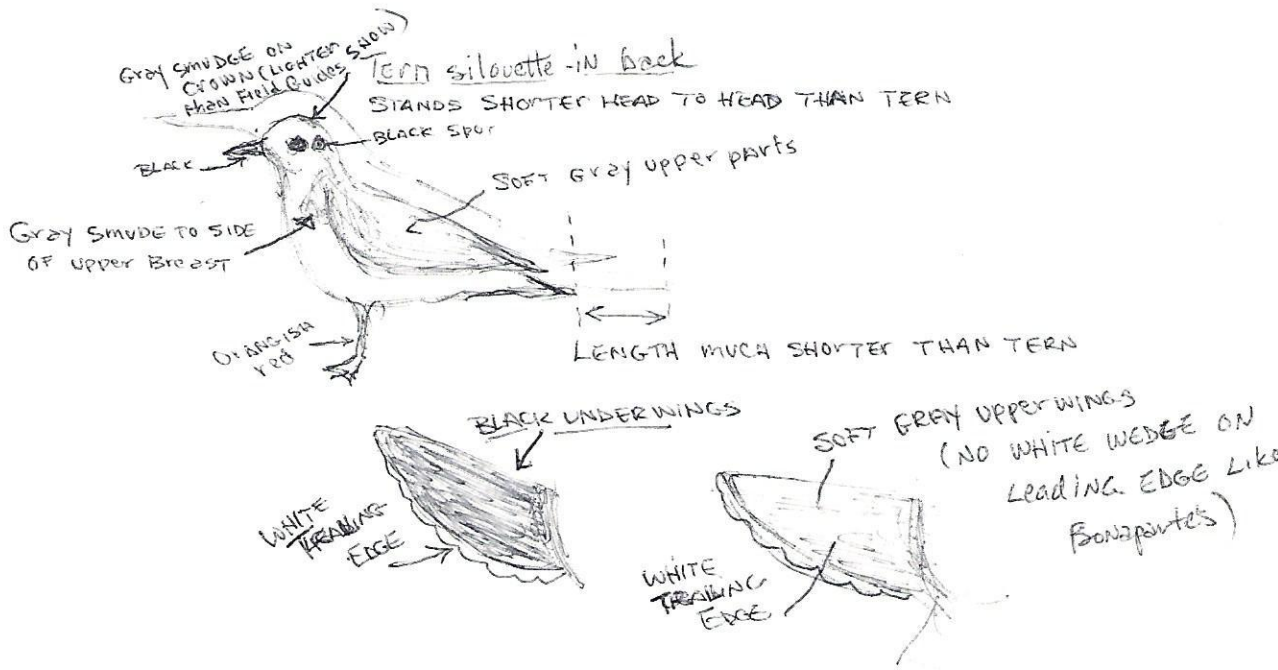 Gray SMUDGE ON
CROWN (LIGHTER
than Field Guides SHOW)
Tern silouette -in back
STANDS SHORTER HEAD TO HEAD THAN TERN
BLACK SPOT
BLACK
SOFT Gray upper parts
Gray SMUDE TO SIDE
OF upper Breast
OrANGISH
red
LENGTH MUCH SHORTER THAN TERN
BLACK UNDERWINGS
WHITE
TRAILING
EDGE
SOFT GRAY UPPERWINGS
(NO WHITE WEDGE ON
Leading EDGE Like
Bonaparte's)
WHITE
TRAILING
EDGE